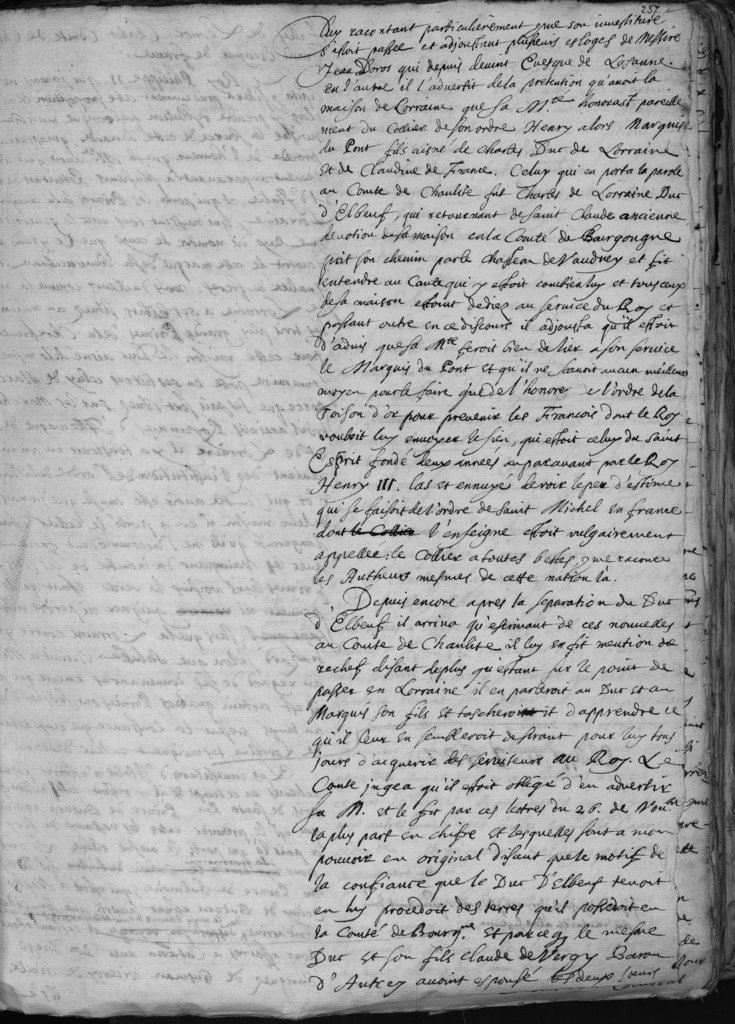 237
Luy racontant particulièrement que son investiture
s'estoit passée et adjoustant plusieurs esloges de Messire
Jean Doros qui depuis devint Evesque de Losanne.
en l'autre il l'advertit de la pretention qu'avoit la
maison de Lorraine que sa M.te honorast pareille
ment du Collier de son ordre Henry alors Marquis
du Pont fils aisné de Charles Duc de Lorraine
et de Claudine de France. Celuy qui en porta la parole
au Comte de Chanlite fut Charles de Lorraine Duc
d'Elbeuf, qui retournant de saint Claude ancienne
devotion de sa maison en la Comté de Bourgongne
prit son chemin par le chasteau de Vaudrey et fit
entendre au Comte qui y estoit combien luy et tous ceux
de sa maison estoint dediez au service du Roy et
passant outre en ce discours il adjousta qu'il estoit
d'advis que sa M.te feroit bien de lier a son service
le Marquis du Pont et qu'il ne sçavoit aucun meilleur
moyen pour le faire que de l'honorer de l'ordre de la
Toison d'or pour prevenir les François dont le Roy
vouloit luy envoyer le sien, qui estoit celuy du saint
Esprit fondé deux années auparavant par le Roy
Henry III. las et ennuyé de voir le peu d'estime
qui se faisoit de l'ordre de saint Michel en france
dont le Collier l'enseigne estoit vulgairement
appellée: le collier a toutes bestes, que raconte
les Autheurs mesmes de cette nation là.
Depuis encore après la separation du Duc
d'Elbeuf il arriva qu'escrivant de ces nouvelles
au Comte de Chanlite il luy en fit mention de
rechef disant de plus qu'estant sur le point de
passer en Lorraine il en parleroit au Duc et au
Marquis son fils et tascheroit d'apprendre ce
qu'il leur en sembleroit desirant pour luy tous
jours d'acquerir des serviteurs au Roy. Le
Comte jugea qu'il estoit obligé d'en advertir
sa M. et le fit par ces lettres du 26. de Nov.bre
la plus part en chifre et lesquelles sont a mon
pouvoir en original disant que le motif de
la confiance que le Duc D'Elbeuf tenoit
en luy procedoit des terres qu'il possedoit en
la Comté de Bourg.ne et parceq le mesme
Duc et son fils Claude de Vergy Baron
d'Autrey avoint espousé deux sœurs